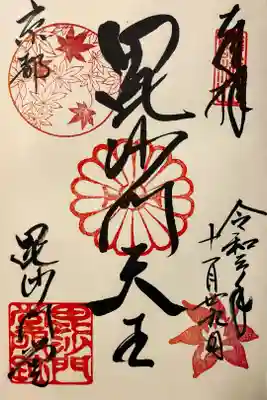 奉拝
令和
十一月廿九日
毘沙門天王
京都
毘沙門堂
毘沙門